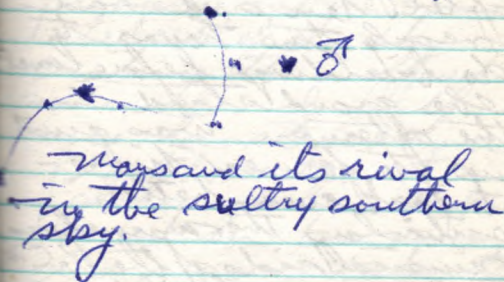 ♂
Mars and its rival
in the sultry southern
sky.